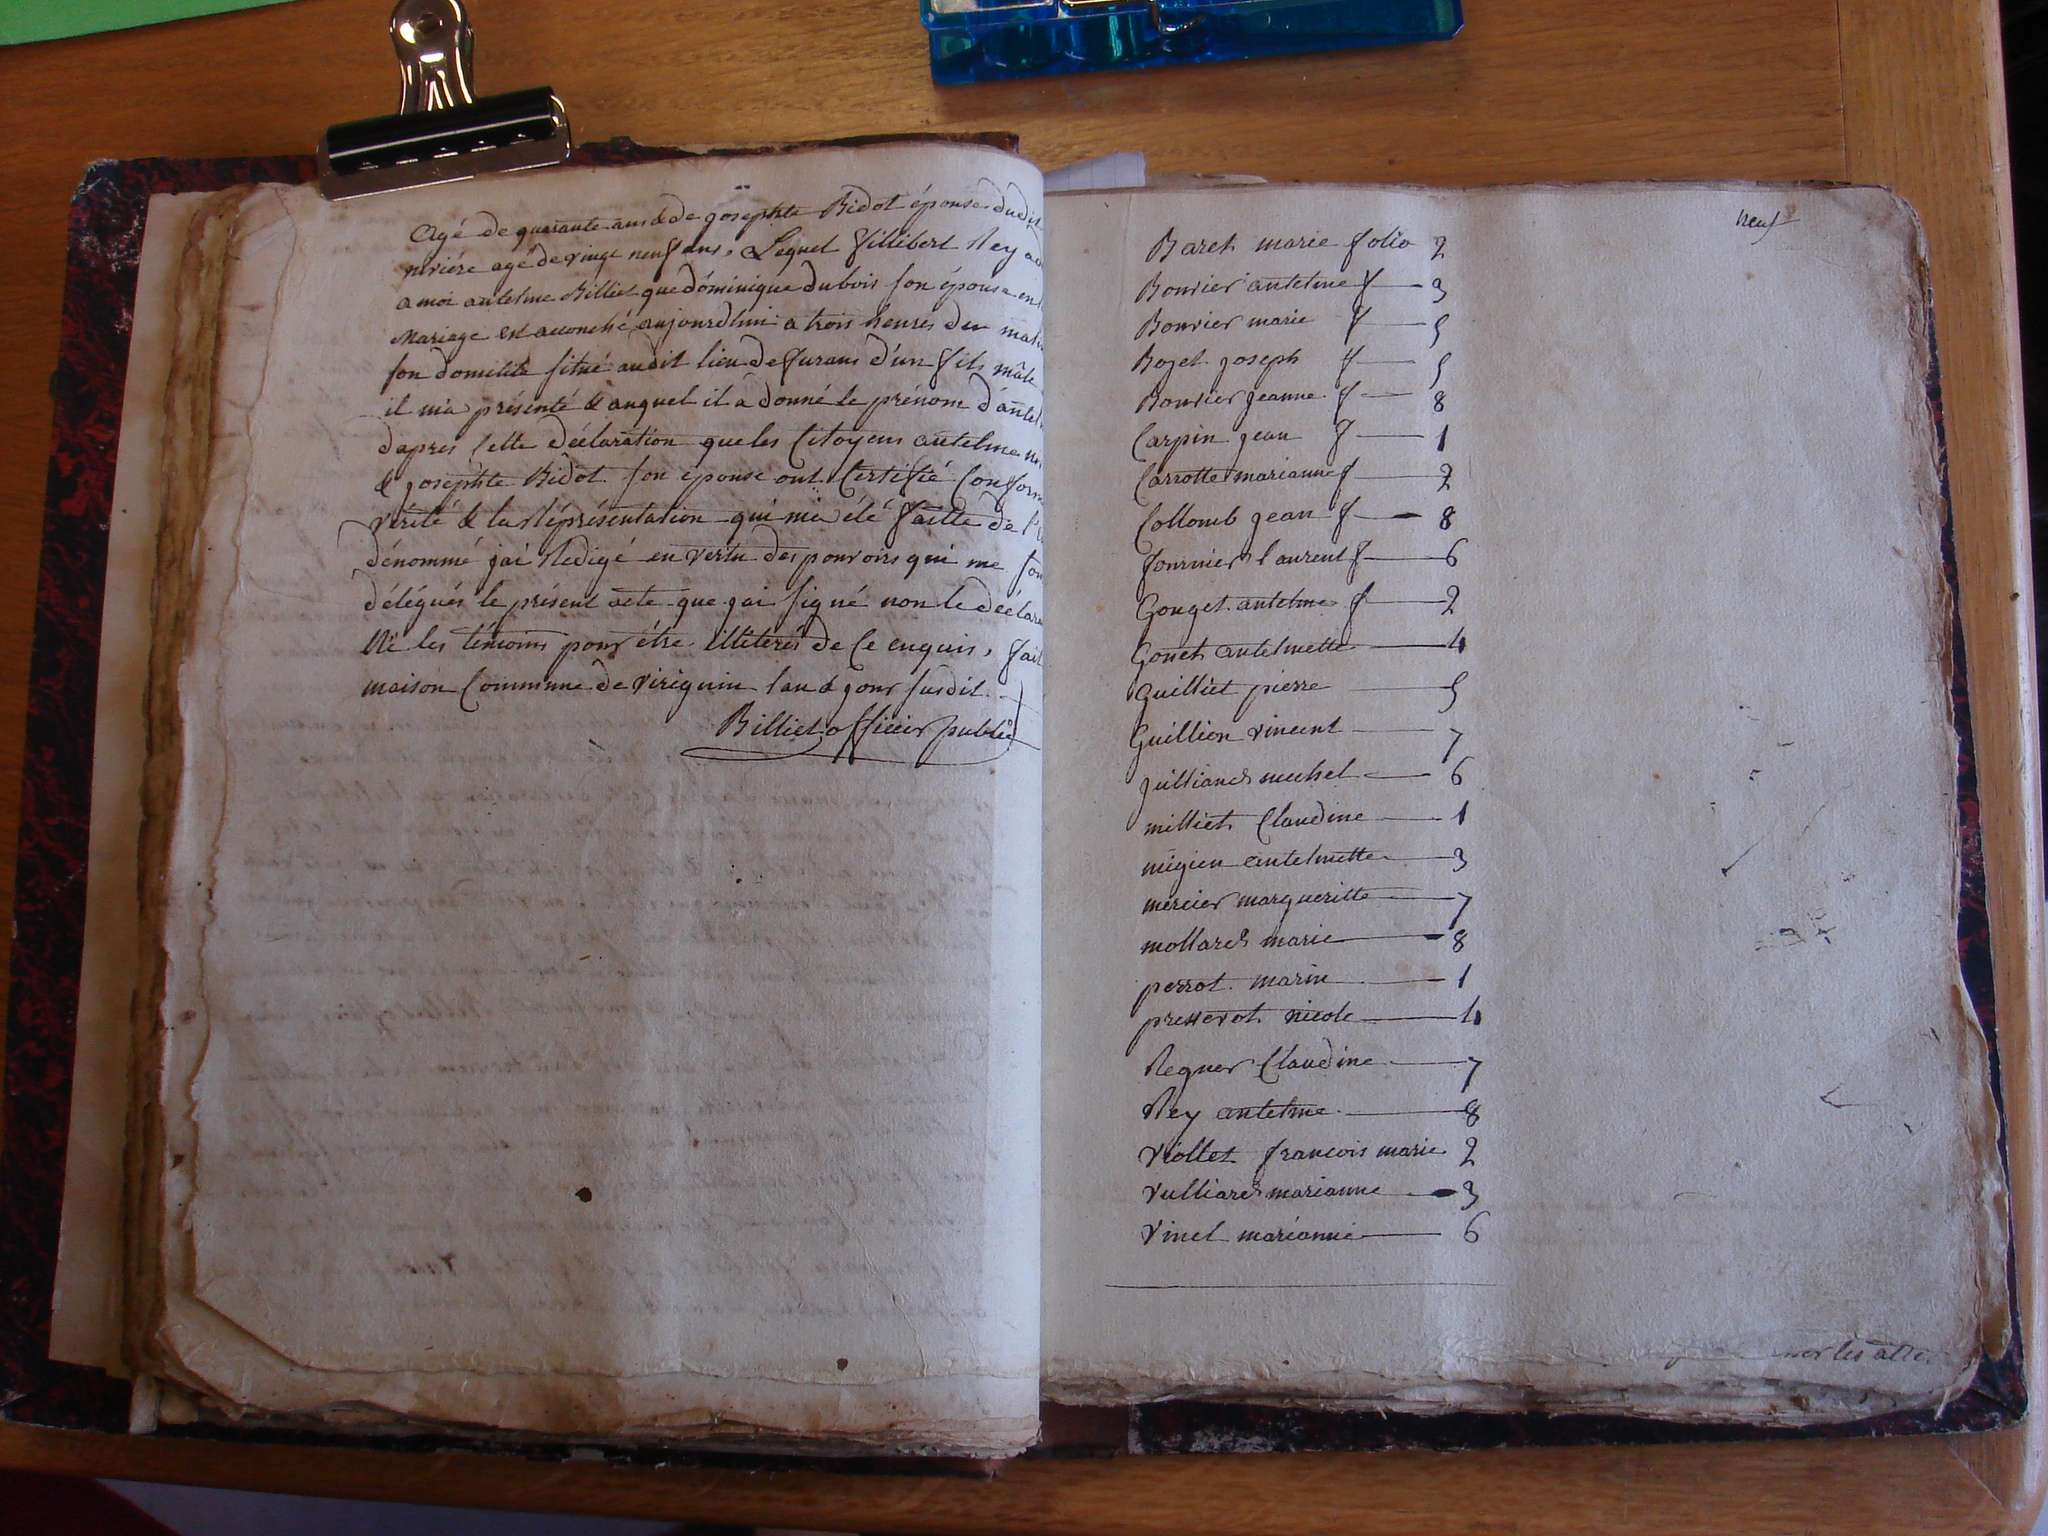 Agé de quarante ans & de josephte Bidot épouse dudit
nivière agé de vingt neuf ans, Lequel fillibert Rey a
a moi antelme Billiet que dominique dubois son épouse en
Mariage est accouché aujourdhui a trois heures du mat
son domicile situé audit lieu de furans d'un fils mâle
il m'a présenté & auquel il a donné le prénom d'antel
dapres Cette déclaration que les Citoyens antelme ni
& josephte Bidot son épouse ont Certifié Conform
vérité & la Réprésentation qui m'a été faitte de l'
dénommé jai Redigé en vertu des pouvoirs qui me son
délégués le présent acte que jai signé non le déclara
Ni les témoins pour être illiterés de Ce enquis, fait
maison Commune de virignin l'an & jour susdit
Billiet officier public
neuf
Baret marie folio 2
Bonvier antelme f 3
Bonvier marie f 5
Bojet joseph f 5
Bonvier jeanne f 8
Carpin jean f 1
Carrotte marianne f 2
Collomb jean f 8
fournier laurent f 6
Gouget antelme f 2
Gonet antelmette 4
Guilliet pierre 5
Guillion vincent 7
juilliand michel 6
milliet Claudine 1
migieu antelmette 3
mercier margueritte 7
mollard marie 8
perrot marin 1
pressevot nicole 4
Reguer Claudine 7
Rey antelme 8
Viollet francois marie 2
Vulliard marianne 3
Vinet marianne 6
les acte